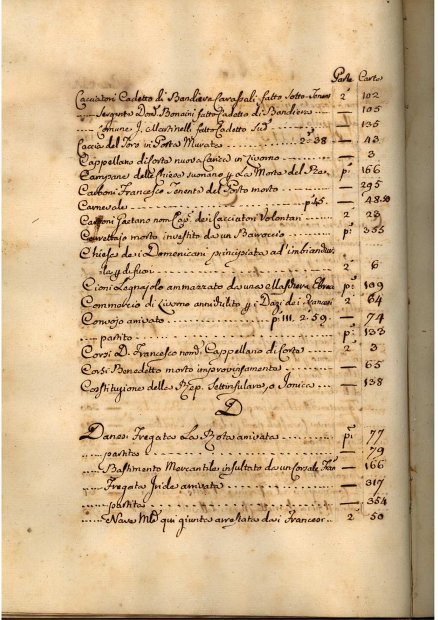 Parte Carte
Cacciatori Cadetto di Bandiera Carassali fatto Sotto-Tenen: 2ª 102
..... Sergente Dom.º Bonaini fatto Cadetto di Bandiera — 105
..... Comune J. Martinelli fatto Cadetto Sud.º — 135
Caccia del Toro in Porta Murata ..... 2ª 38 — 43
Cappellano di Corte nuova Carica in Livorno — 3
Campane delle Chiese suonano p la Morte del — pª 166
Carboni Francesco Tenente del Porto morto — 295
Carnevale ..... pª 45. — 48.50
Gaetano nom. Cap. dei Cacciatori Volontari ..... 2ª 23
morto investito da un Baroccio ..... pª 355
Chiesa dei Domenicani principiata ad imbiandur
di fuori ..... 2ª 6
Cioni Legnajolo ammazzato da una Ebrea pª 109
Commercio di Livorno annichilito p i Dazi dei Francesi 2ª 64
Convojo arrivato ..... p. III. 2ª 59. — 74
..... partito ..... pª 133
Corsi D. Francesco nom.º Cappellano di Corte .. 2ª 3
Corsi Benedetto morto improvvisamente ..... — 65
Costituzione delle Rep. Settinsulare, o Jonica ... — 138
D
Danesi Fregata La Rota arrivata ..... pª 77
..... partita ..... — 79
..... Bastimento Mercantile insultato da un Corsale Fran — 166
..... Fregata Iride arrivata ..... — 317
..... partita ..... — 354
..... Nave qui giunta arrestata dai Francesi 2ª 50